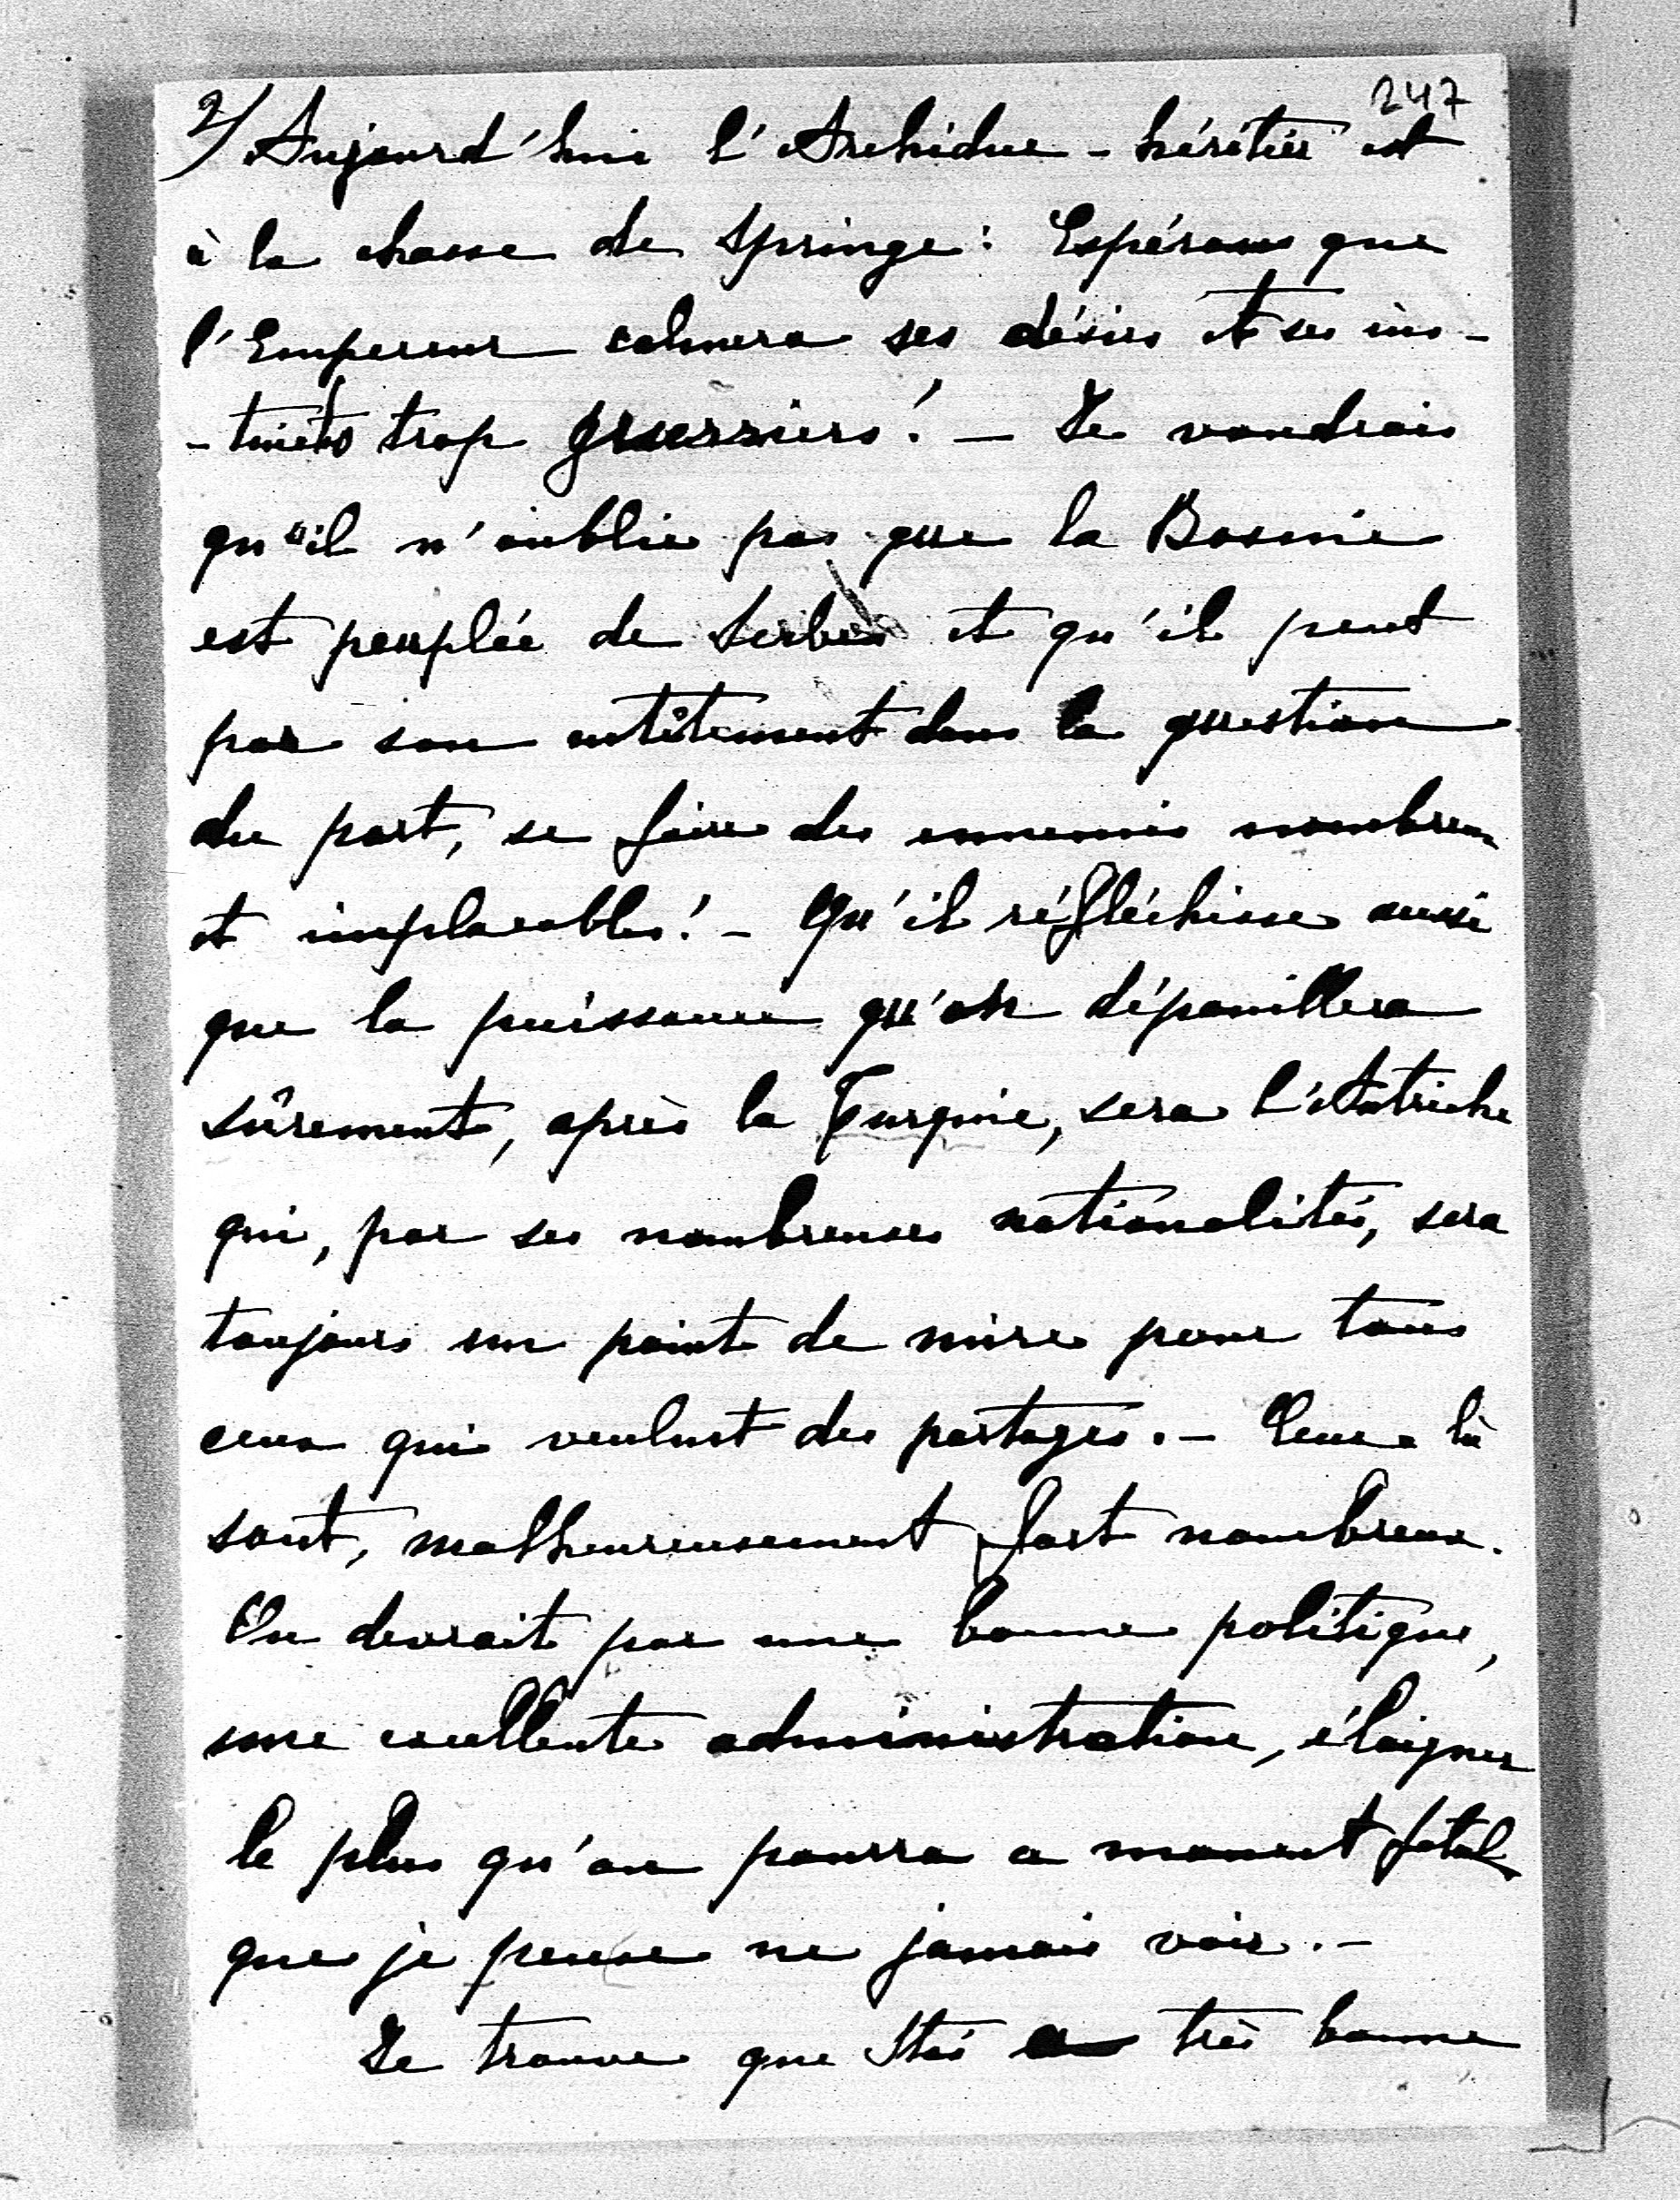 247
2/ Aujourd'hui l'Archiduc-héritier est
à la chasse de Springe: Espérons que
l'Empereur calmera ses désirs et ses ins-
-tincts trop guerriers! — Je voudrais
qu'il n'oublie pas que la Bosnie
est peuplée de Serbes et qu'il peut
par son entêtement dans la question
du port, se faire des ennemis nombreux
et implacables! — Qu'il réfléchisse aussi
que la puissance qu'on dépouillera
sûrement, après la Turquie, sera l'Autriche
qui, par ses nombreuses nationalités, sera
toujours un point de mire pour tous
ceux qui veulent des partages. — Ceux là
sont, malheureusement fort nombreux.
On devrait par une bonne politique,
une excellente administration, éloigner
le plus qu'on pourra ce moment fatal
que je pense ne jamais voir. —
Je trouve que très bonne